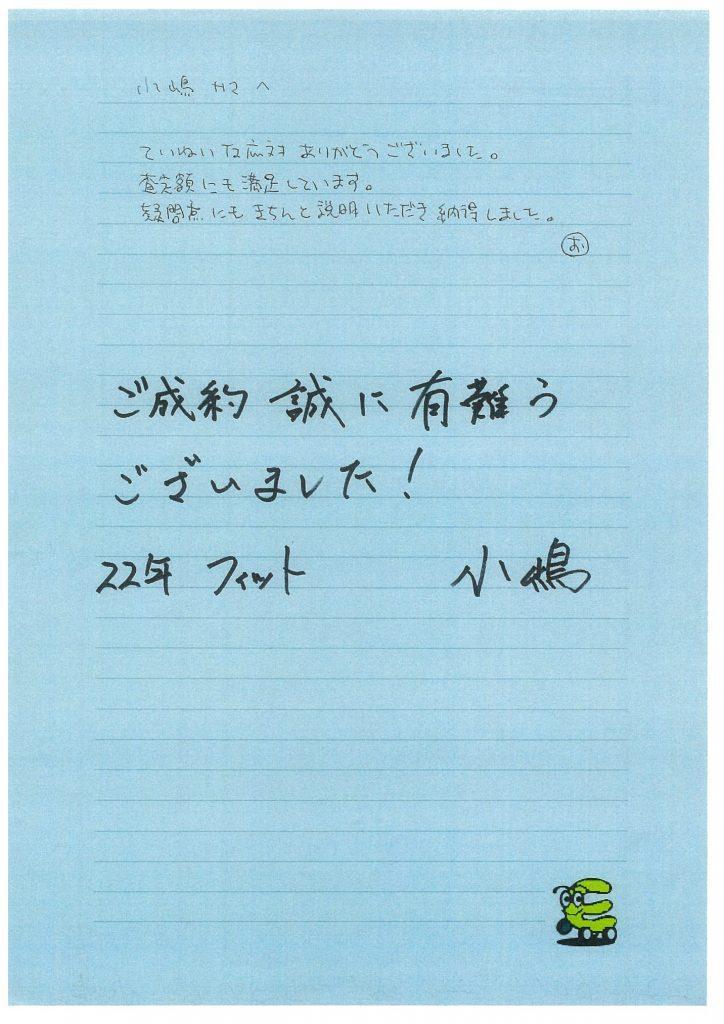 小嶋 さま へ
ていねいな応対 ありがとうございました。
査定額にも満足しています。
疑問点にもきちんと説明いただき納得しました。
お
ご成約 誠に有難う
ございました!
22年 フィット 小嶋